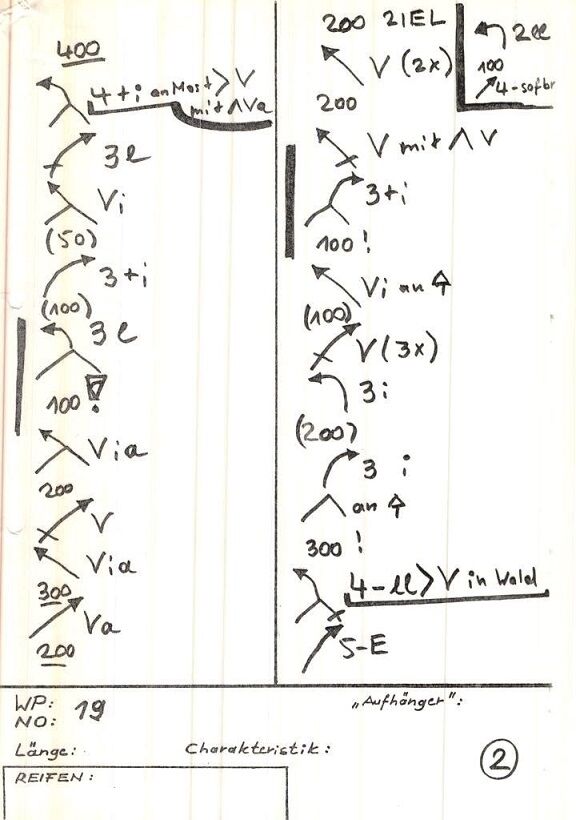 400
4+i an Mast > V
mit ΛVa
3l
Vi
(50)
3+i
(100)
3l
100 !
Via
200
V
Via
300
Va
200
200 ZIEL
V (2x)
200
V mit Λ V
3+i
100 !
Vi an
(100)
V (3x)
3i
(200)
3 i
an
300 !
4-ll > V in Wald
5-E
2ll
100
4-sofbr
WP:
NO: 19
"Aufhänger":
Länge:
Charakteristik:
2
REIFEN: